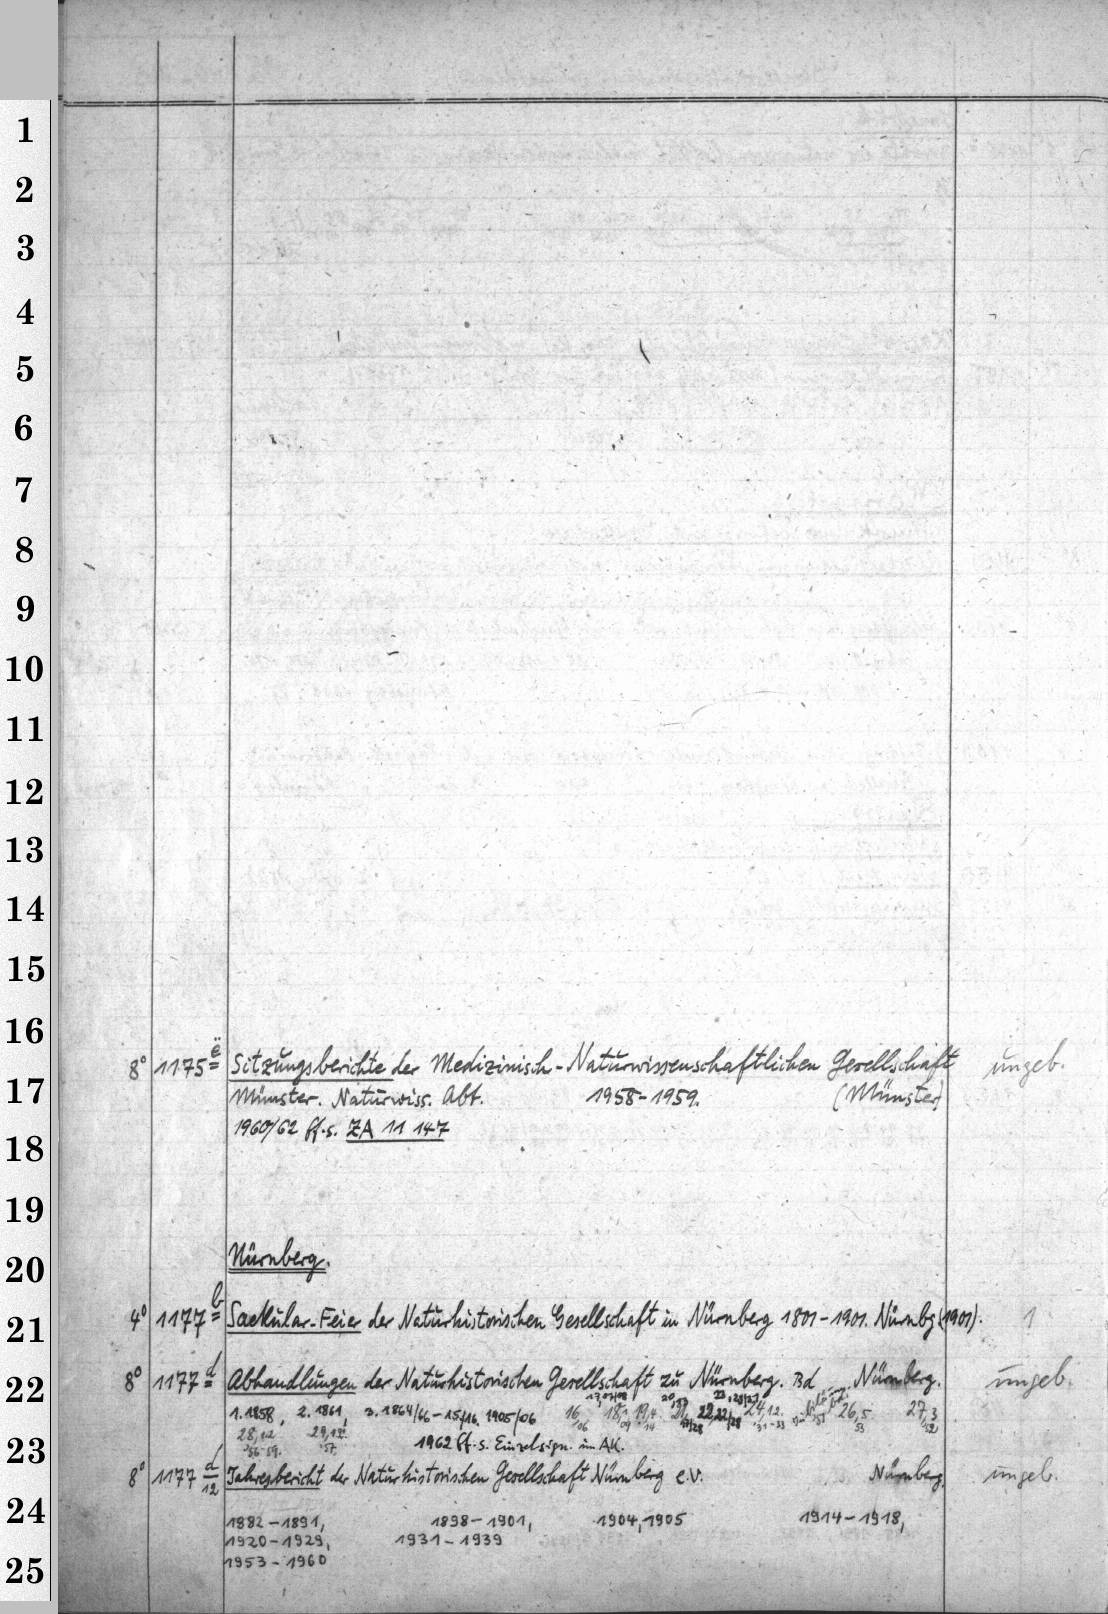 1
2
3
4
5
6
7
8
9
10
11
12
13
14
15
16
8° 1175 ë Sitzungsberichte der Medizinisch-Naturwissenschaftlichen Gesellschaft ungeb.
17 Münster. Naturwiss. Abt. 1958-1959. (Münster)
1960/62 ff. s. ZA 11 147
18
19
Nürnberg.
20
4° 1177 b Saekular-Feier der Naturhistorischen Gesellschaft in Nürnberg 1801-1901. Nürnbg (1901). 1
21
8° 1177 d Abhandlungen der Naturhistorischen Gesellschaft zu Nürnberg. Bd Nürnberg. ungeb.
22
1. 1858, 2. 1861, 3. 1864/66-15/16. 1905/06 16 06 26,5 53 27,3
28,1.2. 56-59. 57. 1962 ff. s. Einzelsign. im AK.
23
8° 1177 d 12 Jahresbericht der Naturhistorischen Gesellschaft Nürnberg e.V. Nürnberg. ungeb.
24 1882-1891, 1898-1901, 1904, 1905 1914-1918,
1920-1929, 1931-1939
25 1953-1960